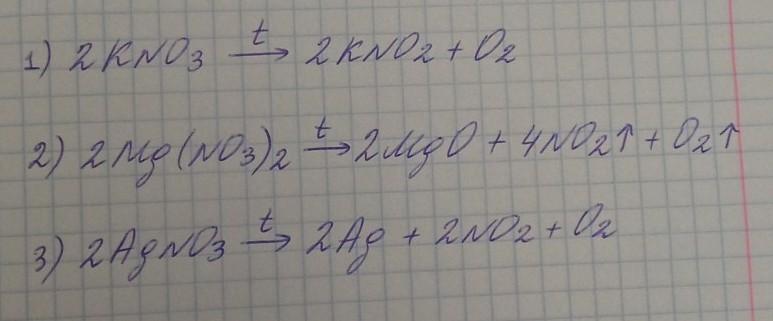 1) 2KNO₃ →ᵗ 2KNO₂ + O₂
2) 2Mg(NO₃)₂ →ᵗ 2MgO + 4NO₂↑ + O₂↑
3) 2AgNO₃ →ᵗ 2Ag + 2NO₂ + O₂